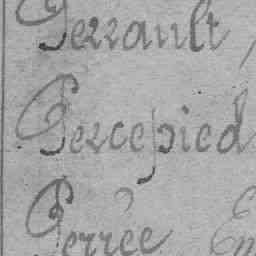 Perrault,
Percepied
Perrée Em